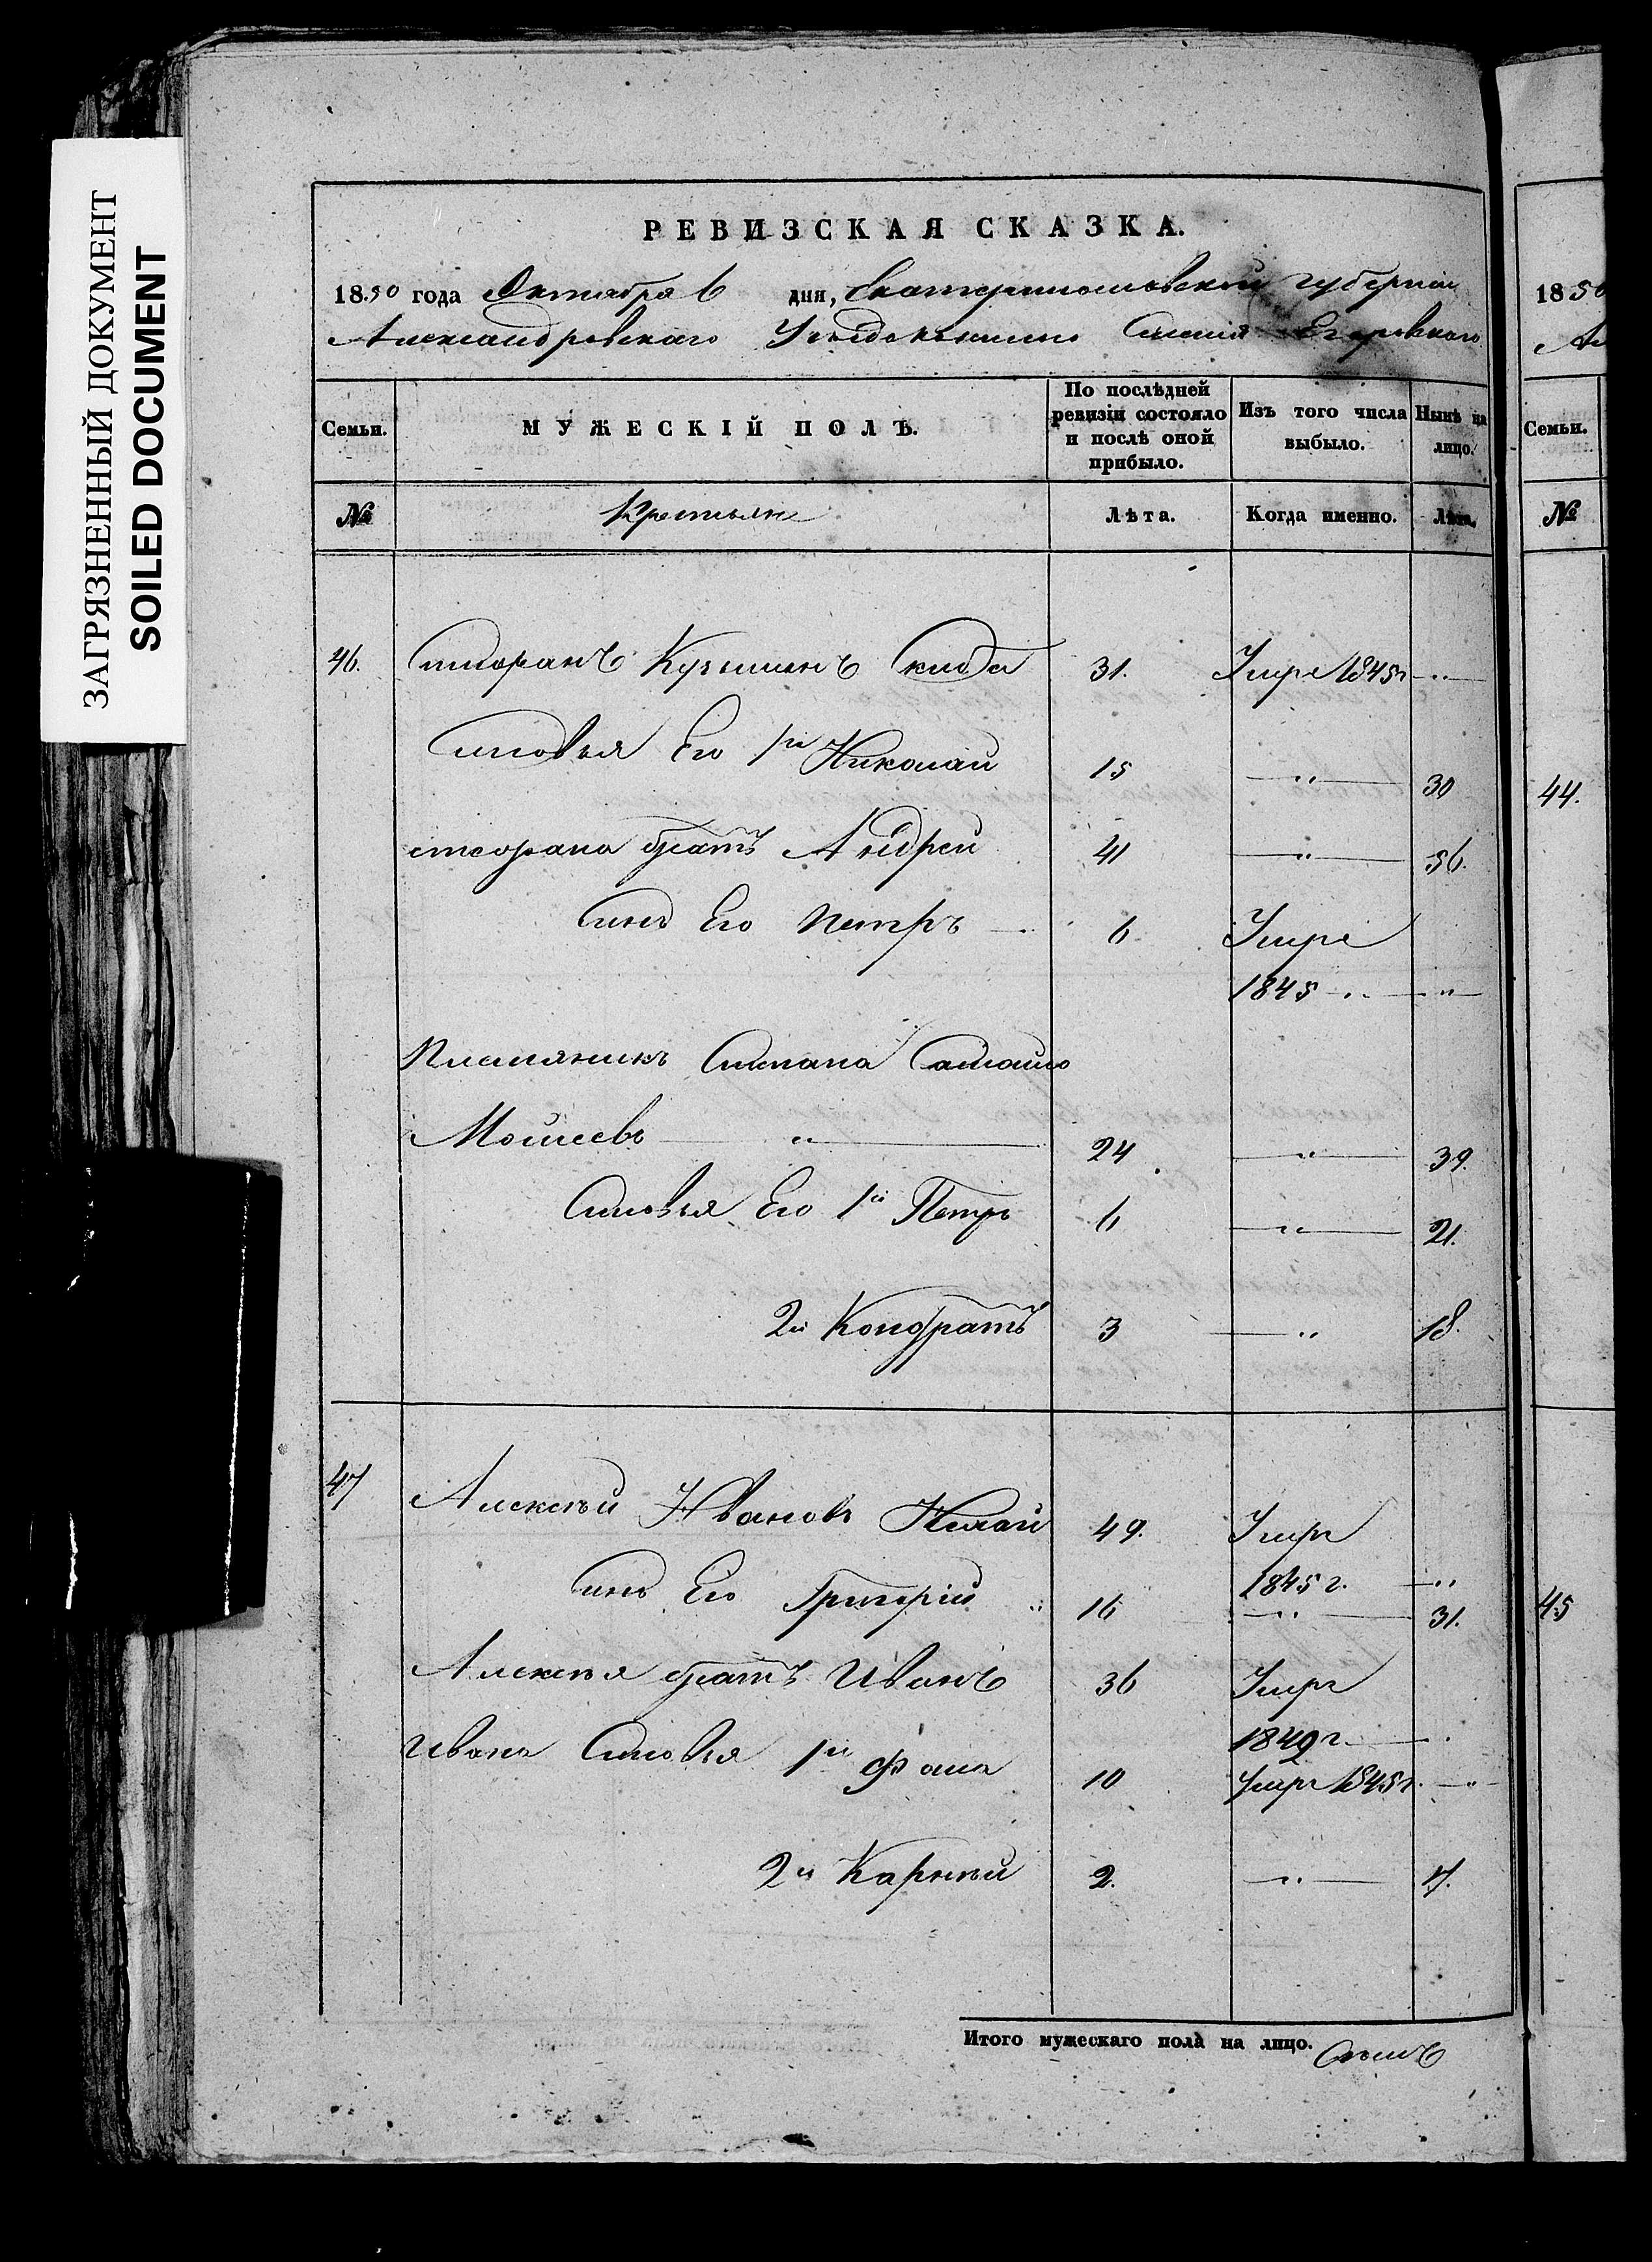 ЗАГРЯЗНЕННЫЙ ДОКУМЕНТ
SOILED DOCUMENT
РЕВИЗСКАЯ СКАЗКА.
1850 года Октября 6 дня, Екатеринославской губернии
Александровского Уезда Селения Егоровкаго
Семьи. МУЖЕСКІЙ ПОЛЪ. По послѣдней ревизіи состояло и послѣ оной прибыло. Изъ того числа выбыло. Нынѣ на лицо.
№ Крестьян Лѣта. Когда именно. Лѣта.
46. Кузьминъ 31. Умре 1845 г. - " -
Сыновья Его 1й Николай 15 - " - 30
братъ Андрей 41 - " - 56.
Сынъ Его Петръ 6 Умре
1845 - " -
Племянникъ Степана
Моисеевъ " 24 - " - 39.
Сыновья Его 1й Петръ 6 - " - 21.
2й Кондратъ 3 - " 18.
47 Алексѣй Ивановъ 49. Умре
1845 г. - "
Сынъ Его Григорій " 16 - " - 31.
Алексѣя братъ Иванъ 36 Умре
1849 г.
Ивана Сыновья 1й Фома 10 Умре 1845 г. - " -
2й Карнѣй 2. - " - 17.
Итого мужескаго пола на лицо.
18 50
Семьи.
№
44.
45